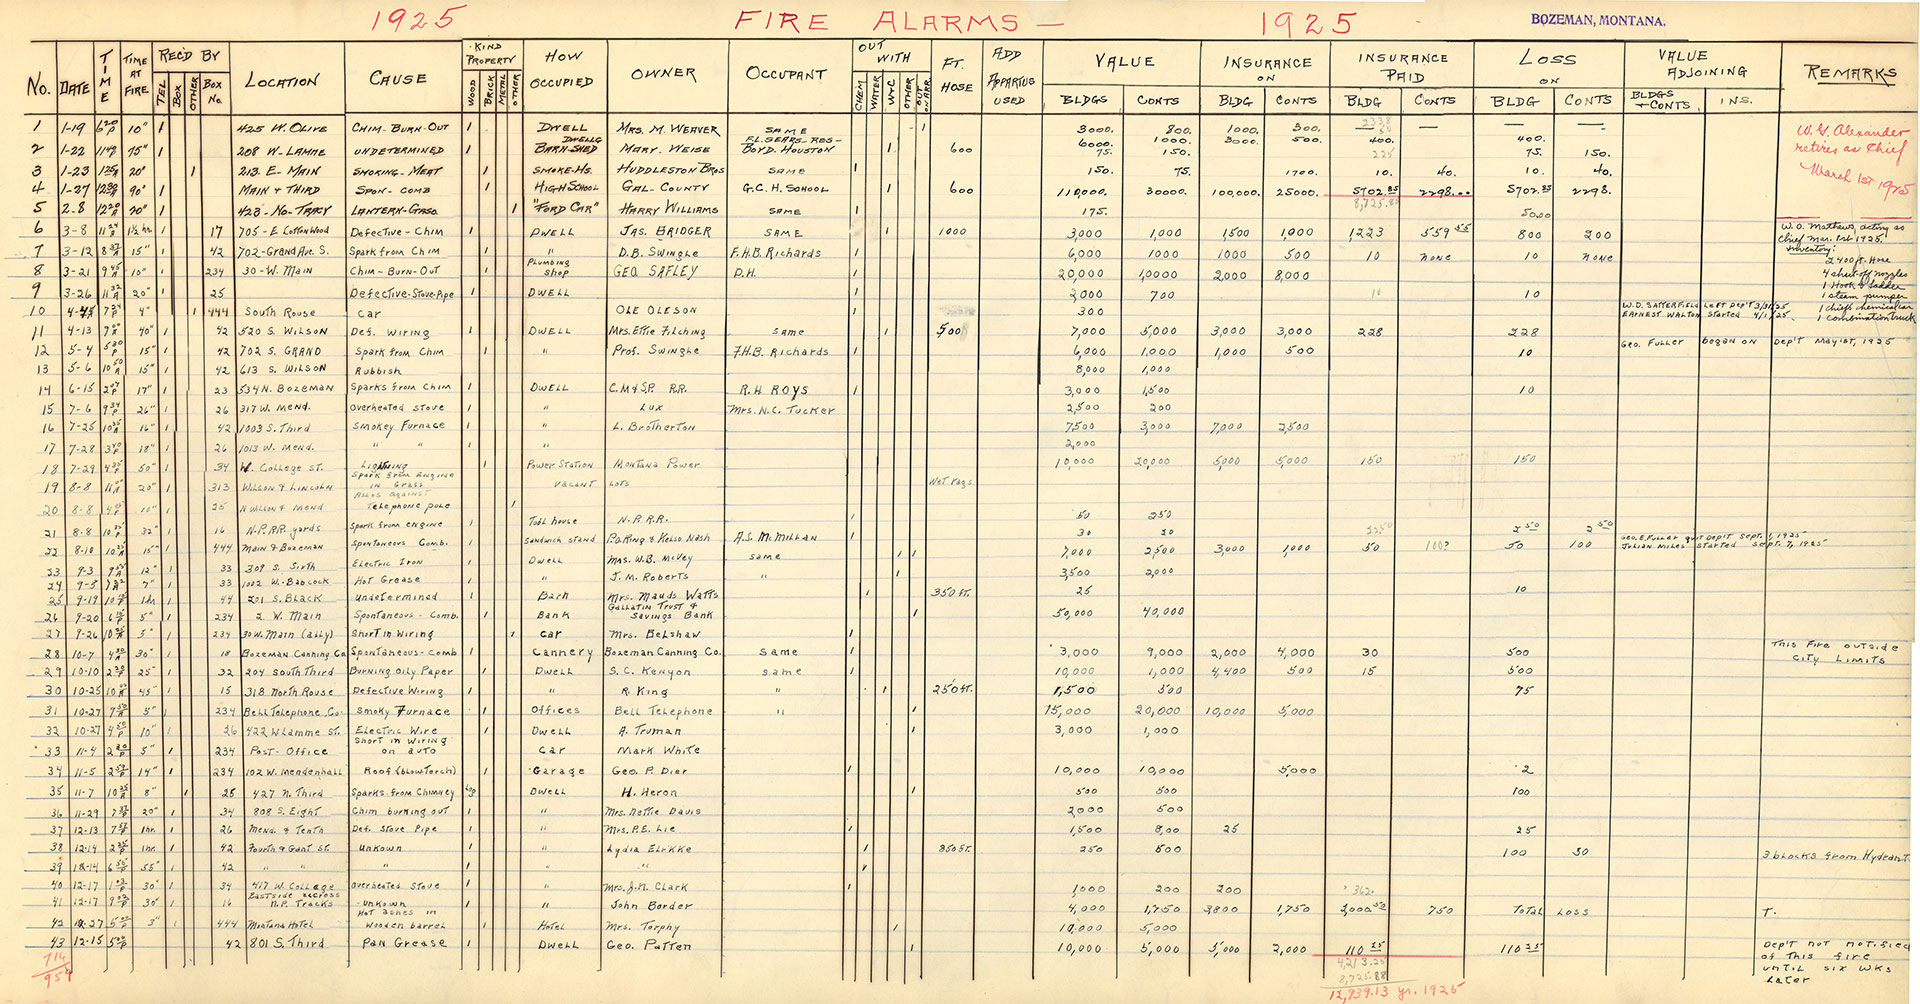 1925 FIRE ALARMS — 1925 BOZEMAN, MONTANA.
No. DATE TIME TIME AT FIRE REC'D BY TEL BOX OTHER BOX No. LOCATION CAUSE KIND PROPERTY WOOD BRICK METAL OTHER HOW OCCUPIED OWNER OCCUPANT OUT WITH CHEM WATER W+C OTHER OUT ON ARR. FT. HOSE ADD APPARTUS USED VALUE BLDGS CONTS INSURANCE ON BLDG CONTS INSURANCE PAID BLDG CONTS LOSS ON BLDG CONTS VALUE ADJOINING BLDGS + CONTS INS. REMARKS
1 1-19 6 20 P 10" 1 425 W. OLIVE CHIM-BURN-OUT 1 DWELL MRS. M. WEAVER SAME 1 3000. 800. 1000. 300. — — — —
2 1-22 75" 1 208 W-LAMME UNDETERMINED 1 DWELLG BARN-SHED MARY WEISE F.L. SEARS-RES- BOYD. HOUSTON 1 600 6000. 75. 1000. 150. 3000. 500. 400. 225 400. 75. 150.
3 1-23 20" 1 213 E-MAIN SMOKING-MEAT 1 SMOKE-HS. HUDDLESTON BROS SAME 1 150. 75. 1700. 10. 40. 10. 40.
4 1-27 90" 1 MAIN + THIRD SPON-COMB 1 HIGH SCHOOL GAL-COUNTY G.C.H. SCHOOL 1 600 110,000. 30000. 100,000. 25000. 5702.85 2298.00 5702.85 2298.
8,725.88
5 2-8 12 20 A 20" 1 423-NO-TRACY LANTERN-GASO 1 "FORD CAR" HARRY WILLIAMS SAME 1 175. 50.00
W. G. Alexander
retires as Chief
March 1st 1925
6 3-8 1½ hr. 1 17 705-E Cottonwood Defective-Chim 1 DWELL JAS. BRIDGER SAME 1 1000 3,000 1,000 1500 1,000 1223 559 55 800 200
W.O. Mathews, acting as
chief Mar. 1st 1925.
inventory:
2400 ft. Hose
4 shut-off nozzles
1 Hook & Ladder
1 steam pumper
1 chief's chemical car
1 combination truck
7 3-12 15" 1 42 702-Grand Ave. S. Spark from Chim 1 " D.B. Swingle F.H.B. Richards 1 6,000 1000 1000 500 10 none 10 none
8 3-21 9 45 A 10" 1 234 30-W. Main Chim-Burn-Out 1 Plumbing shop GEO. SAFLEY D.H. 1 20,000 10000 2,000 8,000
9 3-26 20" 1 25 Defective-Stove-Pipe 1 DWELL 3,000 700 10 10
10 4" 1 444 South Rouse Car OLE OLESON 300
W. D. SATTERFIELD Left Dep't 3/31/25
EARNEST WALTON started 4/1/25.
11 4-13 40" 1 42 520 S. Wilson Def. Wiring 1 DWELL Mrs. Effie Filching same 1 500 7,000 5,000 3,000 3,000 228 228
Geo. Fuller began on Dep't May 1st, 1925
12 5-4 15" 1 42 702 S. GRAND Spark from Chim 1 " Prof. Swingle F.H.B. Richards 1 6,000 1,000 1,000 500 10
13 5-6 15" 1 42 613 S. Wilson Rubbish 8,000 1,000
14 6-15 17" 1 23 534 N. Bozeman Sparks from Chim 1 DWELL C.M & S.P. R.R. R.H. ROYS 1 3,000 1,500 10
15 7-6 26" 1 26 317 W. Mend. Overheated stove 1 " Lux Mrs. N.C. Tucker 2,500 200
16 7-25 16" 1 42 1003 S. Third Smokey Furnace 1 " L. Brotherton 7500 3,000 7,000 2,500
17 7-28 18" 1 26 1013 W. Mend. " " 1 " 2,000
18 7-29 50" 1 34 W. College St. Lightning 1 Power Station Montana Power 10,000 20,000 5,000 5,000 150 150
19 8-8 20" 1 313 Wilson & Lincoln Spark from Engine in Grass vacant Lots Wet rags
20 8-8 10" 1 25 N Wilson & Mend Ashes against Telephone pole 1
21 8-8 32" 1 16 N.P.R.R. yards Spark from engine 1 Tool house N.P.R.R. 1 50 250 2 50 2 50
22 8-10 15" 1 444 Main & Bozeman Spontaneous Comb. 1 Sandwich stand P.O. King & Kelso Nash A.S. McMillan 1 30 20
Geo. E. Fuller quit Dep't Sept. 1, 1925
Julian Miles started Sept. 7, 1925
23 9-3 12" 1 33 309 S. Sixth Electric Iron 1 Dwell Mrs. W.B. McVey same 1 1 7,000 2,500 3,000 1,000 50 100? 50 100
24 9-5 7" 1 33 1002 W. Babcock Hot Grease 1 " J. M. Roberts " 1 3,500 2,000
25 9-19 1hr 1 44 201 S. Black Undetermined 1 Barn Mrs. Mauds Watts 1 350 ft. 25 10
26 9-20 5" 1 234 2 W. Main Spontaneous-Comb. 1 Bank Gallatin Trust & Savings Bank 1 50,000 40,000
27 9-26 5" 1 234 30 W. Main (ally) Short in Wiring 1 car Mrs. Belshaw 1
28 10-7 30" 1 18 Bozeman Canning Co Spontaneous-Comb 1 Cannery Bozeman Canning Co. Same 1 3,000 9,000 2,000 4,000 30 500 This fire outside City Limits
29 10-10 25" 1 32 204 South Third Burning Oily Paper 1 Dwell S. C. Kenyon same 1 10,000 1,000 4,400 500 15 500
30 10-25 45" 1 15 318 North Rouse Defective Wiring 1 " R. King " 1 250 ft. 1,500 500 75
31 10-27 5" 1 234 Bell Telephone Co. Smoky Furnace 1 Offices Bell Telephone " 1 15,000 20,000 10,000 5,000
32 10-27 10" 1 26 422 W Lamme St. Electric Wire 1 Dwell A. Truman 1 3,000 1,000
33 11-4 5" 1 234 Post-Office Short in Wiring on auto car Mark White
34 11-5 14" 1 234 102 W. Mendenhall Roof (blow torch) 1 Garage Geo. P. Dier 1 10,000 10,000 5,000 2
35 11-7 8" 1 25 427 N. Third Sparks from Chimney Log Dwell H. Heron 1 500 500 100
36 11-29 20" 1 34 808 S. Eight Chim burning out 1 " Mrs. Nettie Davis 2000 500
37 12-13 1hr. 1 26 Mend. & Tenth Def. Stove Pipe 1 " Mrs. P.E. Lie 1 1,500 800 25 25
38 12-14 1hr. 1 42 Fourth & Gant St. Unkown 1 " Lydia Elekke 1 850 ft. 250 500 100 50 3 blocks from Hydrant
39 12-14 55" 1 42 " " " " 1
40 12-17 30" 1 34 417 W. College Overheated stove 1 " Mrs. J.N. Clark 1 1000 200 200 362.
41 12-17 30" 1 16 Eastside accross N.P. Tracks -Unkown 1 " John Border 4,000 1,750 3800 1,750 2,000 50 750 Total Loss T.
42 12-27 3" 1 444 Montana Hotel Hot ashes in wooden barrel 1 Hotel Mrs. Torphy 1 10,000 5,000
43 12-15 42 801 S. Third Pan Grease 1 Dwell Geo. Patten 10,000 5,000 5,000 2,000 110 25 110 25
Dep't not notified
of this fire
until six wks
later
4,213.25
8,725.88
12,939.13 yr. 1925